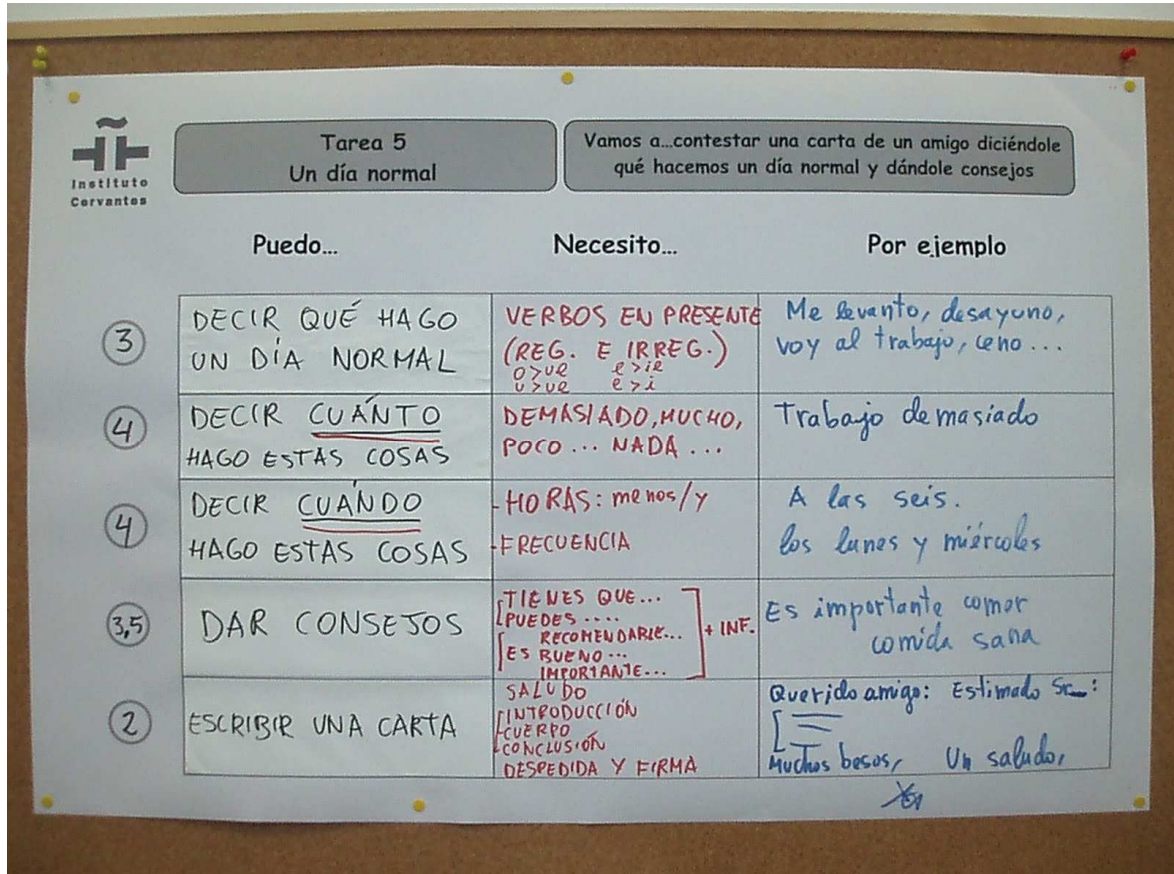 Instituto
Cervantes
Tarea 5
Un día normal
Vamos a...contestar una carta de un amigo diciéndole
qué hacemos un día normal y dándole consejos
Puedo...
Necesito...
Por ejemplo
3
DECIR QUÉ HAGO
UN DÍA NORMAL
VERBOS EN PRESENTE
(REG. E IRREG.)
o>ue e>ie
u>ue e>i
Me levanto, desayuno,
voy al trabajo, ceno...
4
DECIR CUÁNTO
HAGO ESTAS COSAS
DEMASIADO, MUCHO,
POCO... NADA...
Trabajo demasiado
4
DECIR CUÁNDO
HAGO ESTAS COSAS
-HORAS: menos/y
-FRECUENCIA
A las seis.
los lunes y miércoles
3,5
DAR CONSEJOS
TIENES QUE...
PUEDES....
RECOMENDABLE...
ES BUENO...
IMPORTANTE...
+ INF.
Es importante comer
comida sana
2
ESCRIBIR UNA CARTA
SALUDO
INTRODUCCIÓN
CUERPO
CONCLUSIÓN
DESPEDIDA Y FIRMA
Querido amigo: Estimado Sr.:
Muchos besos, Un saludo,